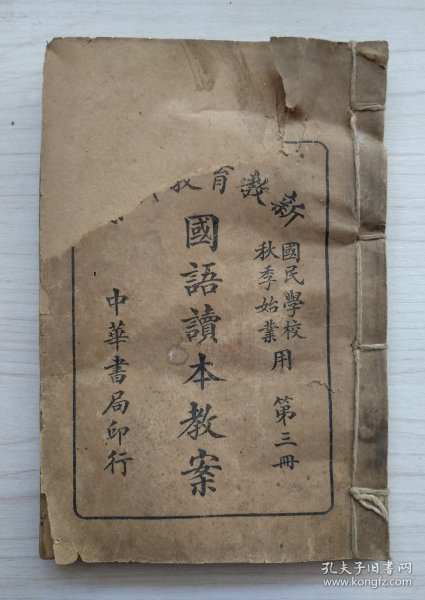 新教育教
國民學校
秋季始業
用
第三冊
國語讀本教案
中華書局印行
孔夫子旧书网
www.kongfz.com